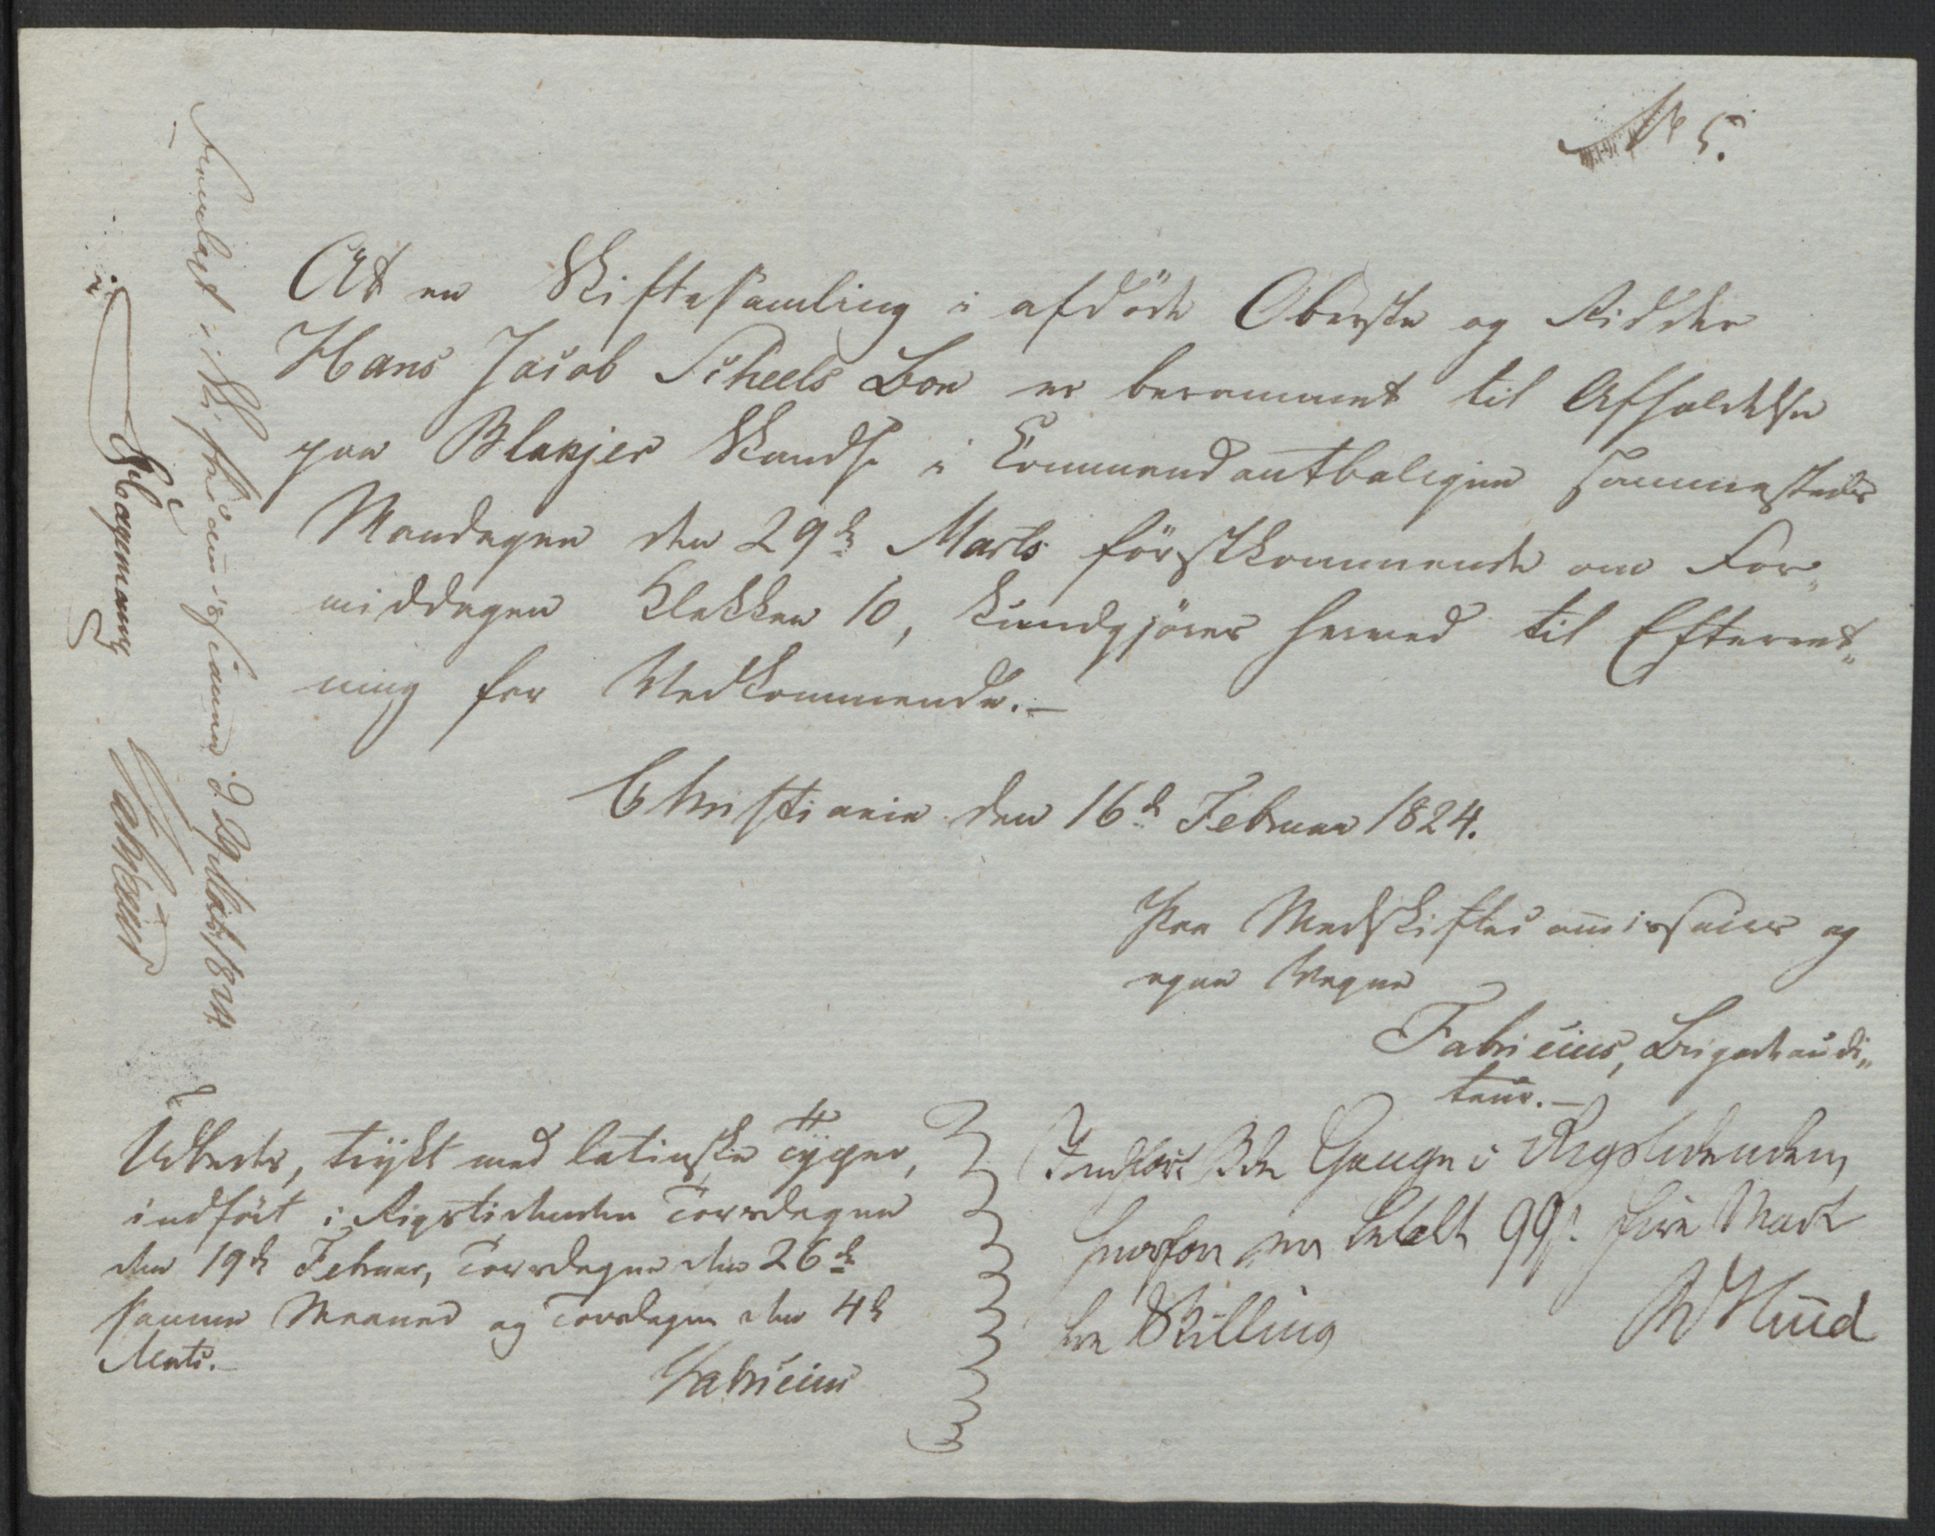 No 5.
At en Skiftesamling i afdöde Oberste og Ridder
Hans Jacob Scheels Boe er berammet til Afholdelse
paa Blakjer Skandse i Commendantboligen sammesteds
Mandagen den 29de Marts förstkommende om For„
middagen Klokken 10, kundgjöres herved til Efterret„
ning for Vedkommende.—
Christiania den 16de Februar 1824.
Paa Medskiftecommissairs og
egne Vegne
Fabricius, Brigadeaudi„
teur.—
Udbedes, trykt med latinske Typer,
indfört i Rigstidenden Torsdagen
den 19de Februar, Torsdagen den 26de
samme Maaned og Torsdagen den 4de
Marts.—
Fabricius
Indfört 3de Gange i Rigstidenden,
hvorfor er betalt 99s. fire Mark
tre Skilling
Hviid
Fremlagt i Skiftecommissionen d 29 Marts 1824
Hagemann
Fabricius